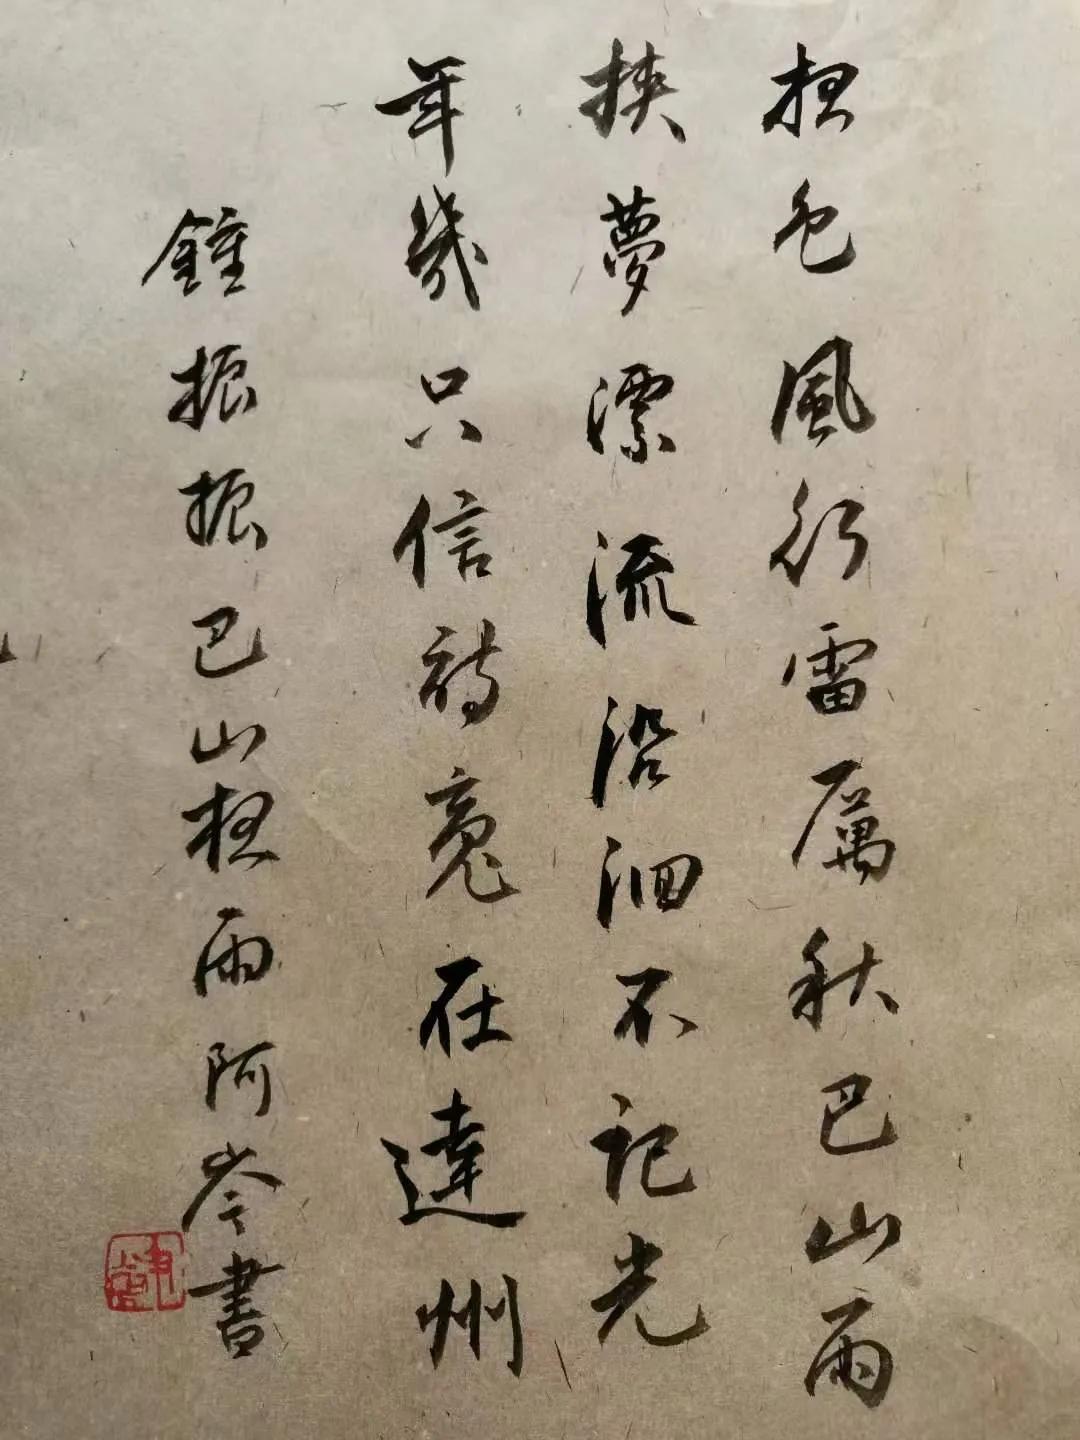 色風行雷厲秋巴山雨
挾夢漂流沿洄不記光
年幾只信詩魂在達州
鍾振振巴山雨阿岑書